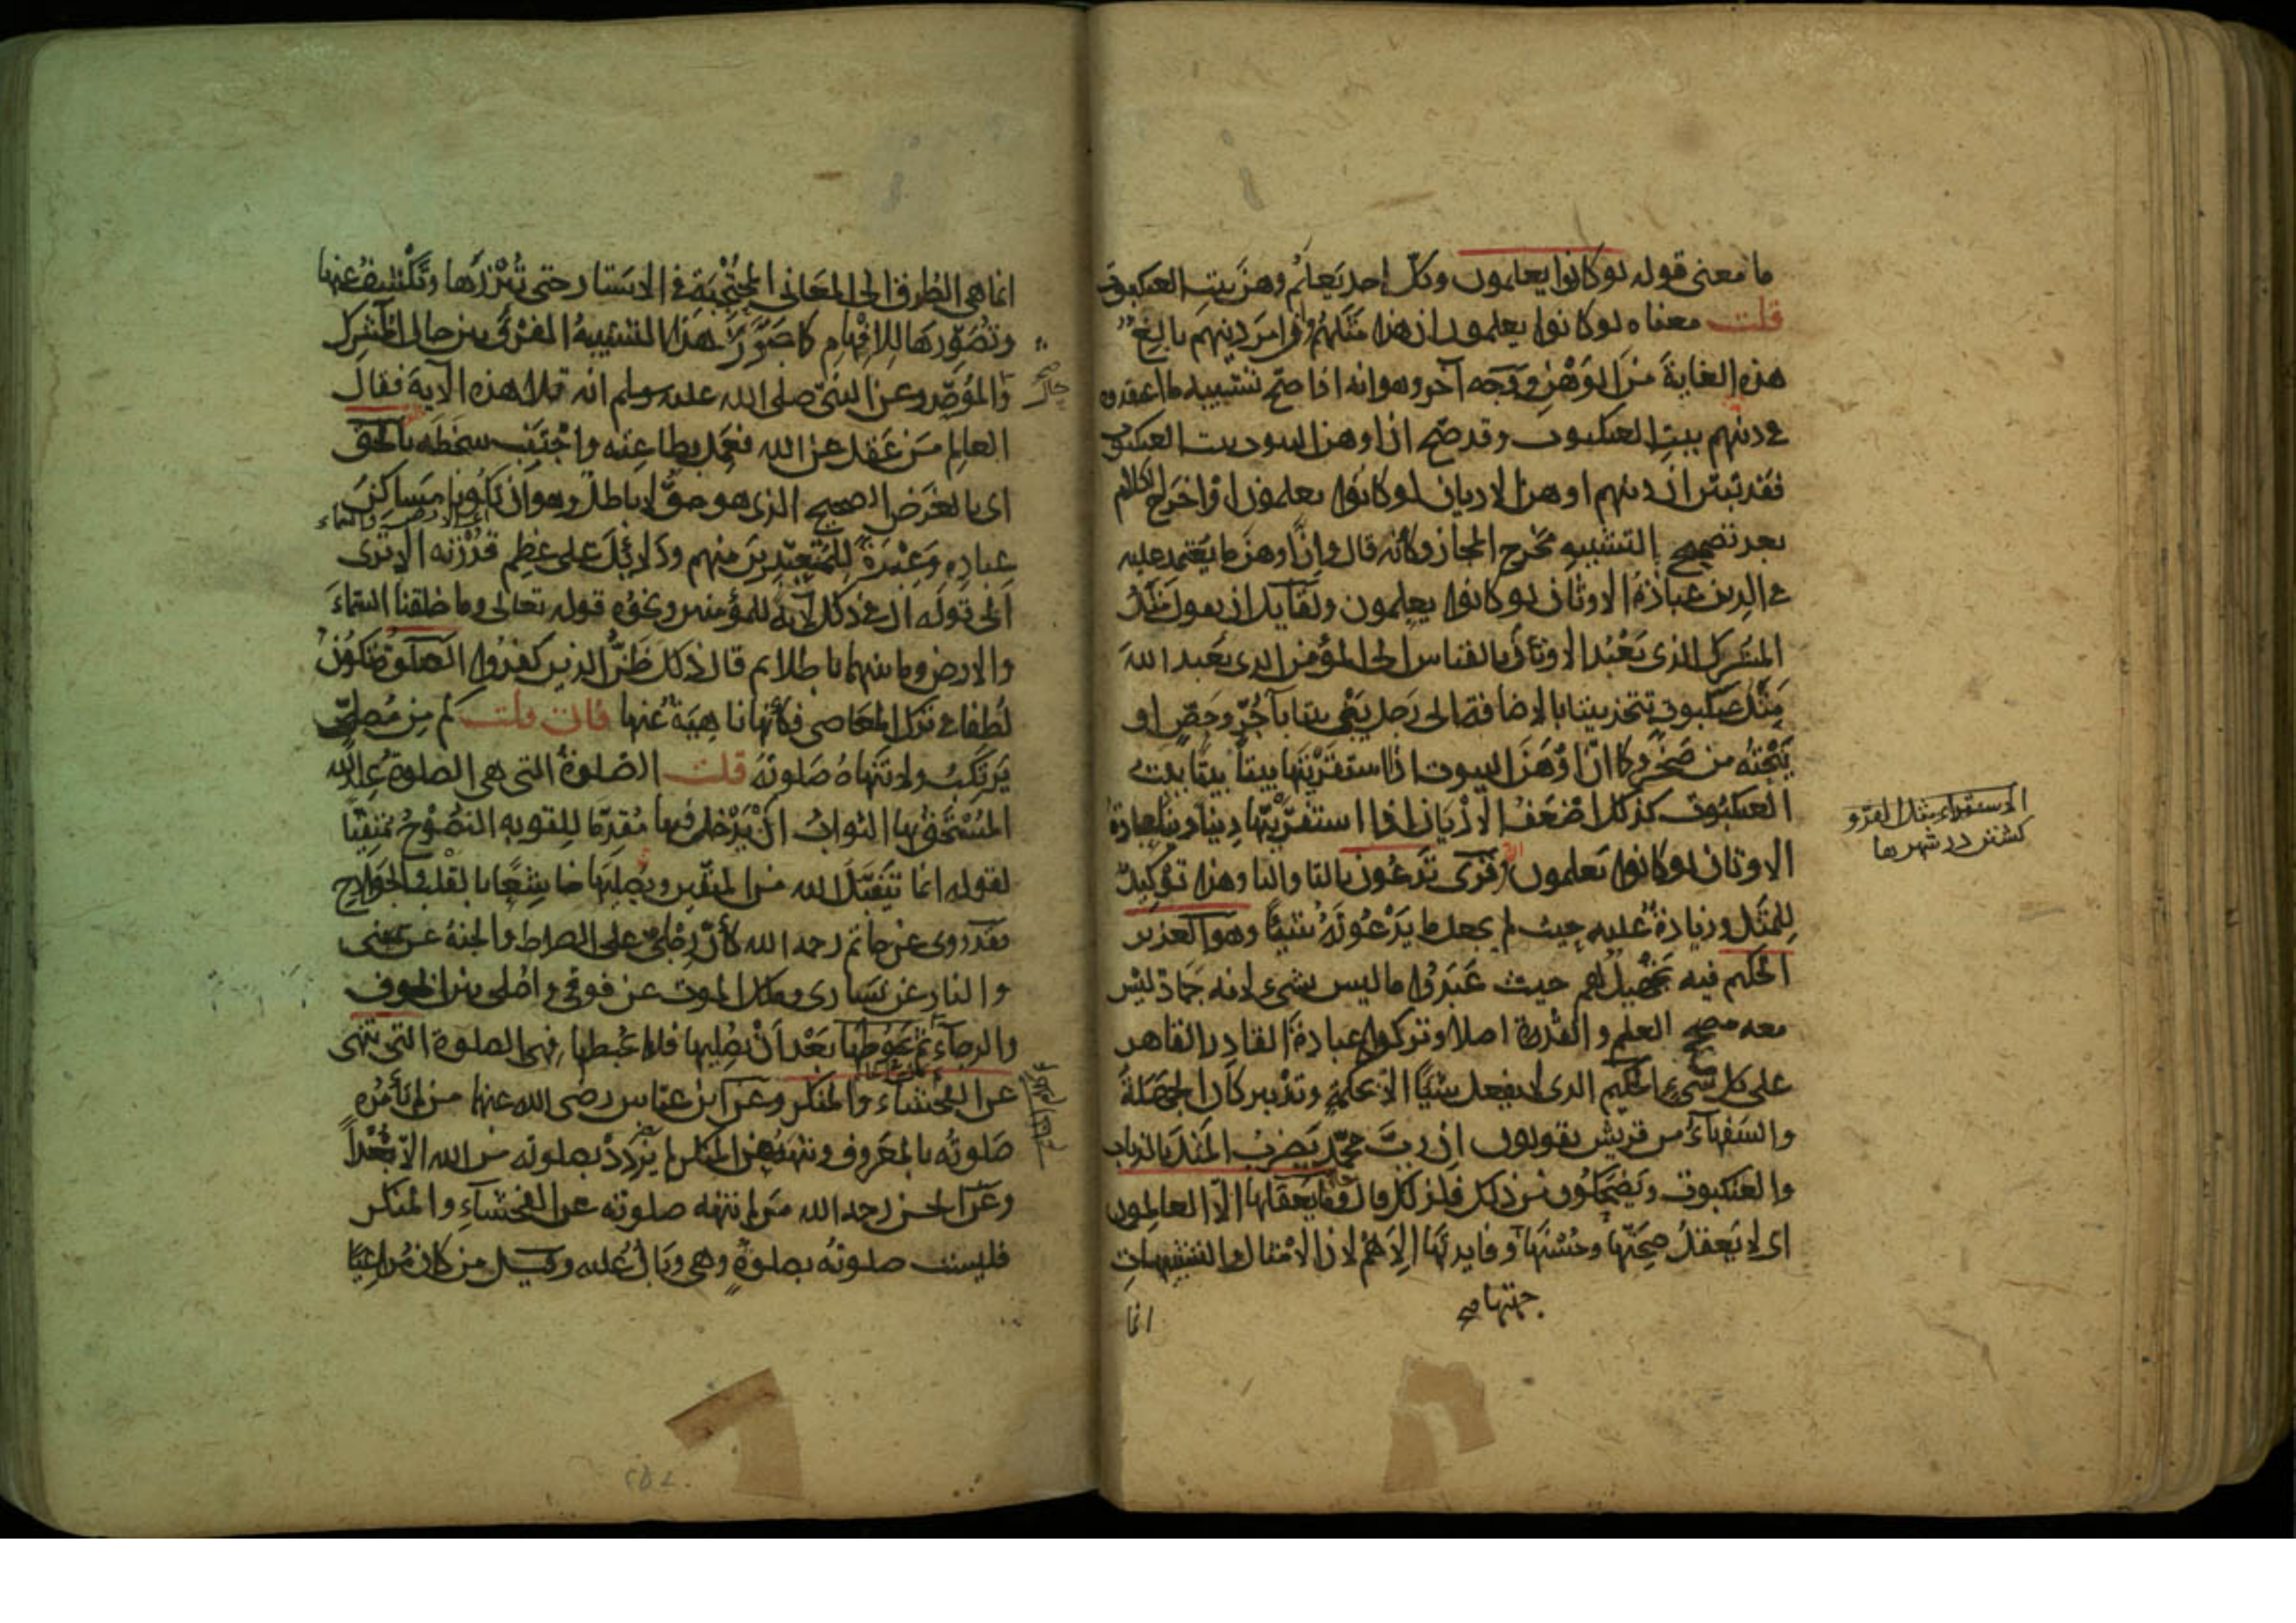 ما معنى قوله لو كانوا يعلمون وكل احد يعلم وهن بيت العنكبوت
قلت معناه لو كانوا يعلمون ان هذا مثلهم وان امر دينهم بالغ
هذه الغاية من الوهن ووجه آخر وهو انه اذا صح تشبيه ما اعتقدوه
في دينهم ببيت العنكبوت وقد صح ان اوهن البيوت بيت العنكبوت
فقد تبين ان دينهم اوهن الاديان لو كانوا يعلمون او اخرج الكلام
بعد تصحيح التشبيه مخرج المجاز وكأنه قال وان اوهن ما يعتمد عليه
في الدين عبادة الاوثان لو كانوا يعلمون ولقايل ان يقول مثل
المشرك الذى يعبد الاوثان بالقياس الى المؤمن الذى يعبد الله
مثل عنكبوت تتخذ بيتا بالاضافة الى رجل يبنى بيتا بآجر وجص او
ينحته من صخر وكما ان اوهن البيوت اذا استقريتها بيتا بيتا بيت
العنكبوت كذلك اضعف الاديان اذا استقريتها دينا دينا عبادة
الاوثان لو كانوا يعلمون قرى تدعون بالتا واليا وهذا توكيد
للمثل وزيادة عليه حيث لم يجعل ما يدعونه شيئا وهو العزيز
الحكيم فيه تجهيل لهم حيث عبدوا ما ليس بشىء لانه جماد ليس
معه مصحح العلم والقدرة اصلا وتركوا عبادة القادر القاهر
على كل شىء الحكيم الذى لا يفعل شيئا الا بحكمة وتدبير كان الجهلة
والسفهاء من قريش يقولون ان رب محمد يضرب المثل بالذباب
والعنكبوت ويضحكون من ذلك فلذلك قال وما يعقلها الا العالمون
اى لا يعقل صحتها وحسنها وفايدتها الا هم لان الامثال والتشبيهات
جهتها صح
انما
الاستقراء مثل القرو
كشتن در شهرها
انما هى الطرق الى المعانى المحتجبة في الاستار حتى تبرزها وتكشف عنها
وتصورها للافهام كما صور هذا التشبيه الفرق بين حال المشرك
حال صح
والموحد وعن النبى صلى الله عليه وسلم انه تلا هذه الآية فقال
العالم من عقل عن الله فعمل بطاعته واجتنب سخطه بالحق
اى بالغرض الصحيح الذى هو حق لا باطل وهو ان تكونا مساكن
اى الارض والسماء
عباده وعبرة للمعتبرين منهم ودلائل على عظم قدرته الا ترى
الى قوله ان في ذلك لآية للمؤمنين ونحوه قوله تعالى وما خلقنا السماء
والارض وما بينهما باطلا ثم قال ذلك ظن الذين كفروا الصلوة تكون
لطفا في ترك المعاصى فكأنها ناهية عنها فان قلت كم من مصلى
يرتكب ولا تنهاه صلوته قلت الصلوة التى هى الصلوة عند الله
المستحق بها الثواب ان يدخل فيها مقدما للتوبة النصوح متقيا
لقوله انما يتقبل الله من المتقين ويصليها خاشعا بالقلب والجوارح
فقد روى عن حاتم رحمه الله كأن رجلى على الصراط والجنة عن يمينى
والنار عن يسارى وملك الموت عن فوقى واصلى بين الخوف
والرجاء ثم يحوطها بعد ان يصليها فلا يحبطها فهى الصلوة التى تنهى
عن الفحشاء والمنكر وعن ابن عباس رضى الله عنهما من لم تأمره
صلوته بالمعروف وتنهه عن المنكر لم يزدد بصلوته من الله الا بعدا
وعن الحسن رحمه الله من لم تنهه صلوته عن الفحشاء والمنكر
فليست صلوته بصلوة وهى وبال عليه وقيل من كان مراعيا